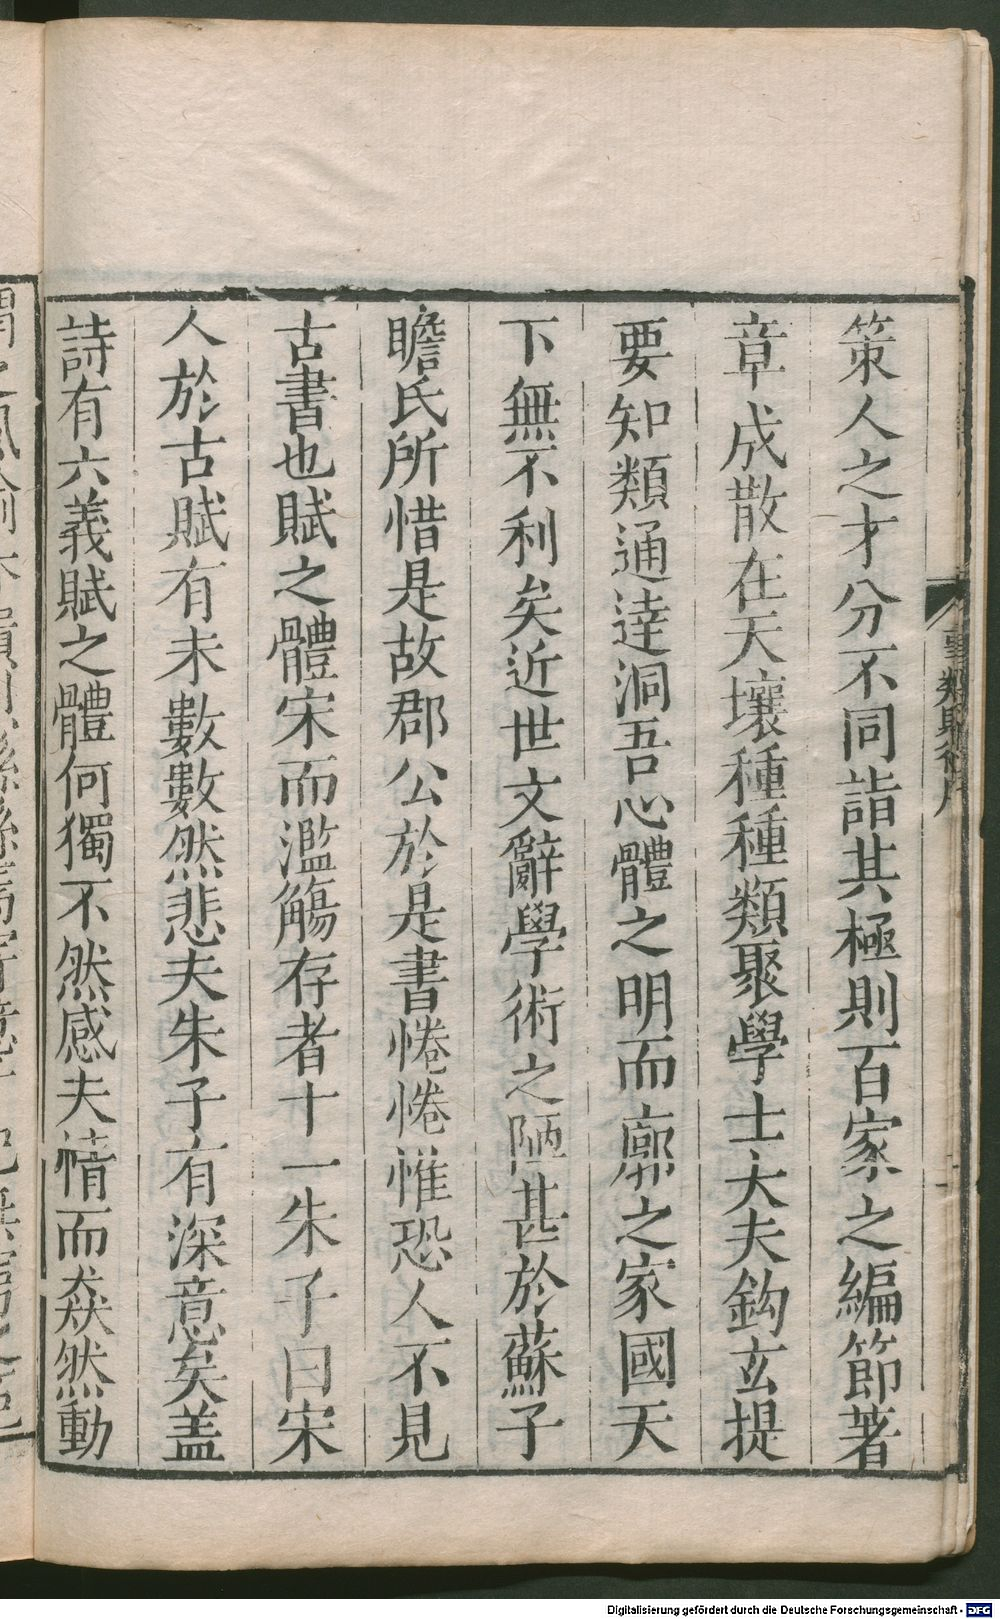 策人之才分不同詣其極則百家之編節著
章成散在天壤種種類聚學士大夫鈎玄提
要知類通達洞吾心體之明而廓之家國天
下無不利矣近世文辭學術之陋甚於蘇子
瞻氏所惜是故郡公於是書惓惓惟恐人不見
古書也賦之體宋而濫觴存者十一朱子曰宋
人於古賦有未數數然悲夫朱子有深意矣盖
詩有六義賦之體何獨不然感夫情而猋然動
事類賦
Digitalisierung gefördert durch die Deutsche Forschungsgemeinschaft - DFG